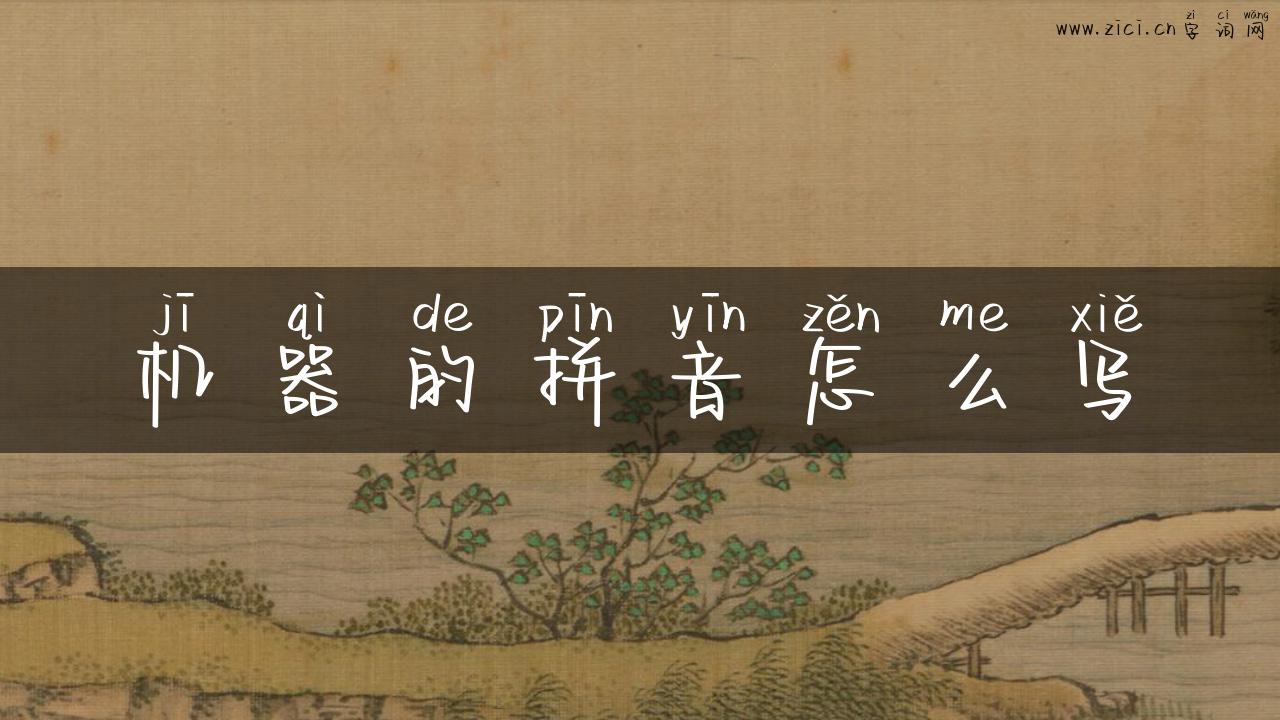 www.zici.cn
zì cí wǎng
字词网
jī qì de pīn yīn zěn me xiě
机器的拼音怎么写